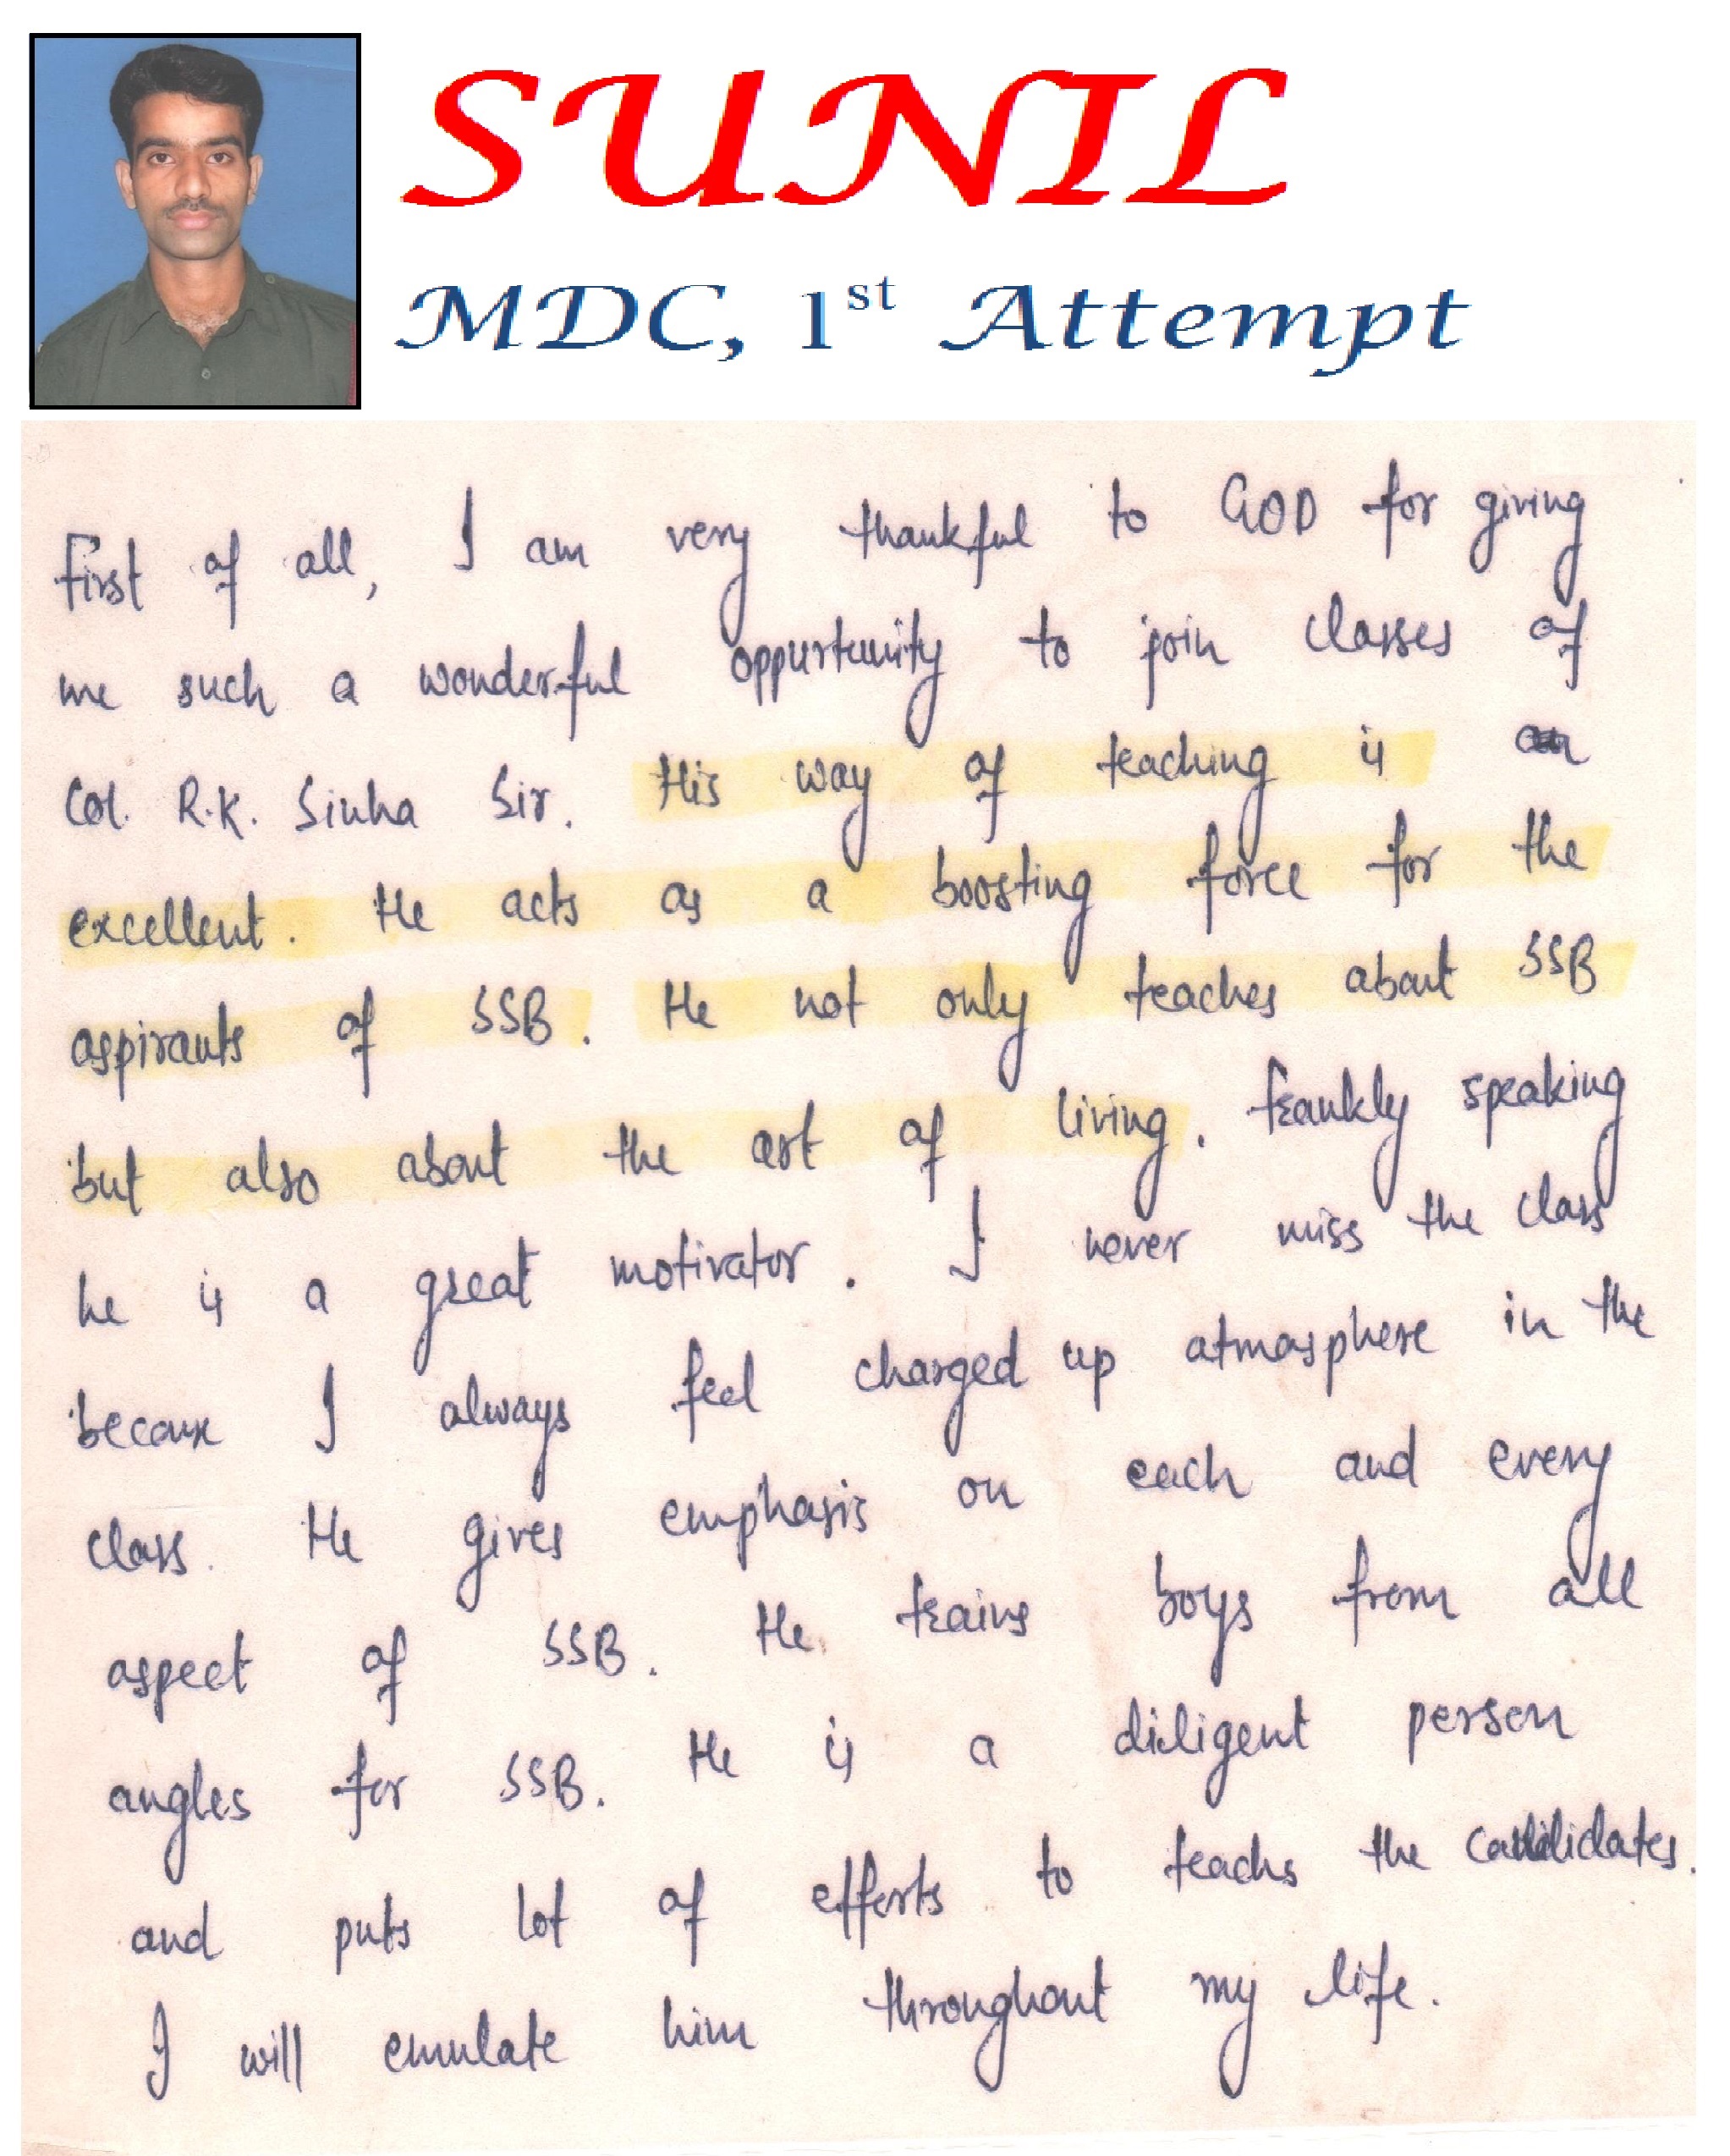 SUNIL
MDC, 1st Attempt
First of all, I am very thankful to GOD for giving
me such a wonderful oppurtunity to join classes of
Col. R.K. Sinha Sir. His way of teaching is
excellent. He acts as a boosting force for the
aspirants of SSB. He not only teaches about SSB
but also about the art of living. Frankly speaking
he is a great motivator. I never miss the class
because I always feel charged up atmosphere in the
class. He gives emphasis on each and every
aspect of SSB. He trains boys from all
angles for SSB. He is a diligent person
and puts lot of efforts to teachs the candidates.
I will emulate him throughout my life.